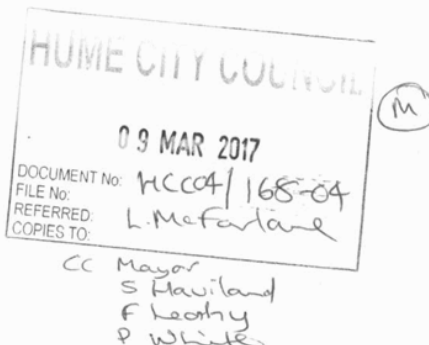 HUME CITY COUNCIL
M
09 MAR 2017
DOCUMENT No: HCC04/168-04
FILE No:
REFERRED: L. McFarlane
COPIES TO:
CC Mayor
S Haviland
F Leahy
P White